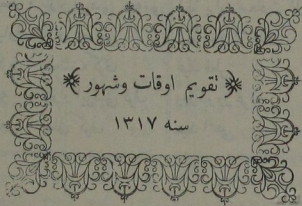 تقويم اوقات وشهور
سنه ١٣١٧